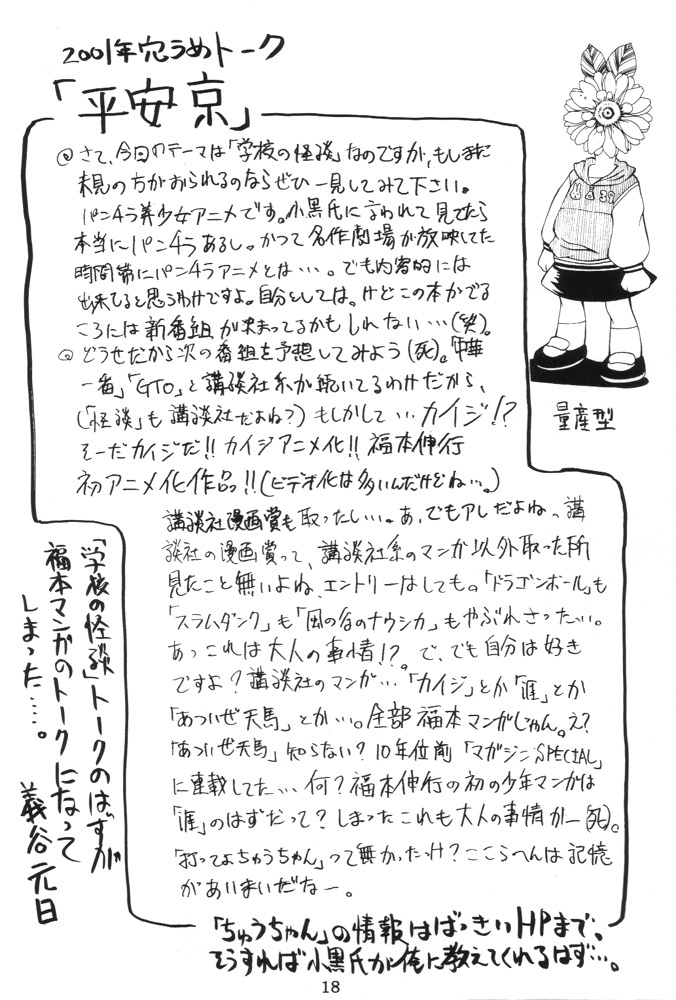 2001年穴うめトーク
「平安京」
◎さて、今回のテーマは「学校の怪談」なのですが、もしまだ
未見の方がおられるのならぜひ一見してみて下さい。
パンチラ美少女アニメです。小黒氏に言われて見てたら
本当にパンチラあるし。かつて名作劇場が放映してた
時間帯にパンチラアニメとは…。でも内容的には
出来てると思うわけですよ。自分としては。けどこの本がでる
ころには新番組が決まってるかもしれない…(笑)。
◎どうせだから次の番組を予想してみよう(死)。「中華
一番」「GTO」と講談社系が続いてるわけだから、
(「怪談」も講談社だよね?)もしかして…カイジ!?
そーだカイジだ!!カイジアニメ化!!福本伸行
初アニメ化作品っ!!(ビデオ化は多いんだけどね…。)
講談社漫画賞も取ったしい…。あ、でもアレだよね、講
談社の漫画賞って、講談社系のマンガ以外取った所
見たこと無いよね、エントリーはしても。「ドラゴンボール」も
「スラムダンク」も「風の谷のナウシカ」もやぶれさった…。
あっこれは大人の事情!?で、でも自分は好き
ですよ?講談社のマンガ…「カイジ」とか「涯」とか
「あついぜ天馬」とか…。全部福本マンガじゃん。え?
「あついぜ天馬」知らない?10年位前「マガジンSPECIAL」
に連載してた…何?福本伸行の初の少年マンガは
「涯」のはずだって?しまったこれも大人の事情かー(死)。
「打ってよちゅうちゃん」って無かったっけ?ここらへんは記憶
があいまいだなー。
「ちゅうちゃん」の情報はばっきぃHPまで。
そうすれば小黒氏が俺に教えてくれるはず…。
「学校の怪談」トークのはずが
福本マンガのトークになって
しまった…。
義谷元日
量産型
18